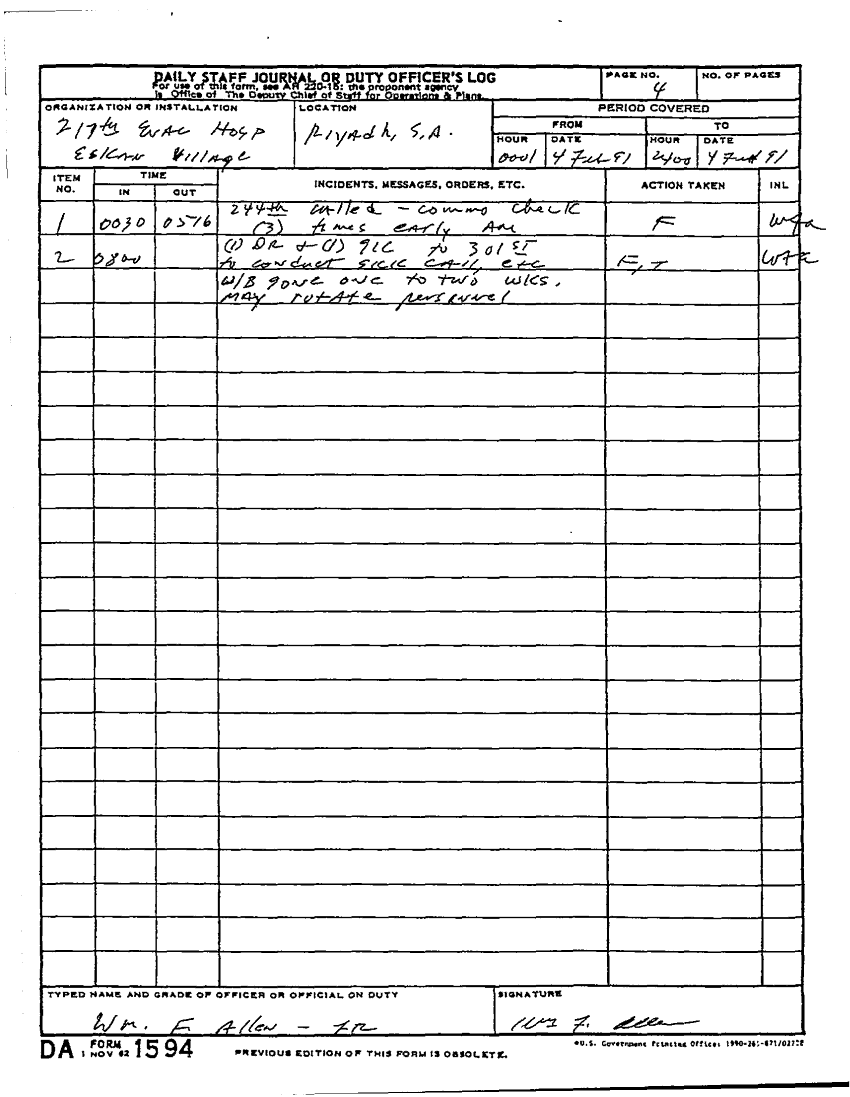 DAILY STAFF JOURNAL OR DUTY OFFICER'S LOG
For use of this form, see AR 220-15; the proponent agency
is Office of The Deputy Chief of Staff for Operations & Plans.
PAGE NO.
4
NO. OF PAGES
ORGANIZATION OR INSTALLATION
217th Evac Hosp
Eskan Village
LOCATION
Riyadh, S.A.
PERIOD COVERED
FROM
TO
HOUR
DATE
HOUR
DATE
0001
4 Feb 91
2400
4 Feb 91
ITEM
NO.
TIME
IN
OUT
INCIDENTS, MESSAGES, ORDERS, ETC.
ACTION TAKEN
INL
1
0030
0516
244th called - commo check
(3) times early AM
F
2
0800
(1) DR + (1) 91C to 301st
to conduct sick call, etc
F, T
W/B gone one to two wks.
MAY rotate personnel
TYPED NAME AND GRADE OF OFFICER OR OFFICIAL ON DUTY
Wm. F Allen
SIGNATURE
Wm F. Allen
DA FORM 1594
1 NOV 62
PREVIOUS EDITION OF THIS FORM IS OBSOLETE.
*U.S. Government Printing Office: 1990-261-871/